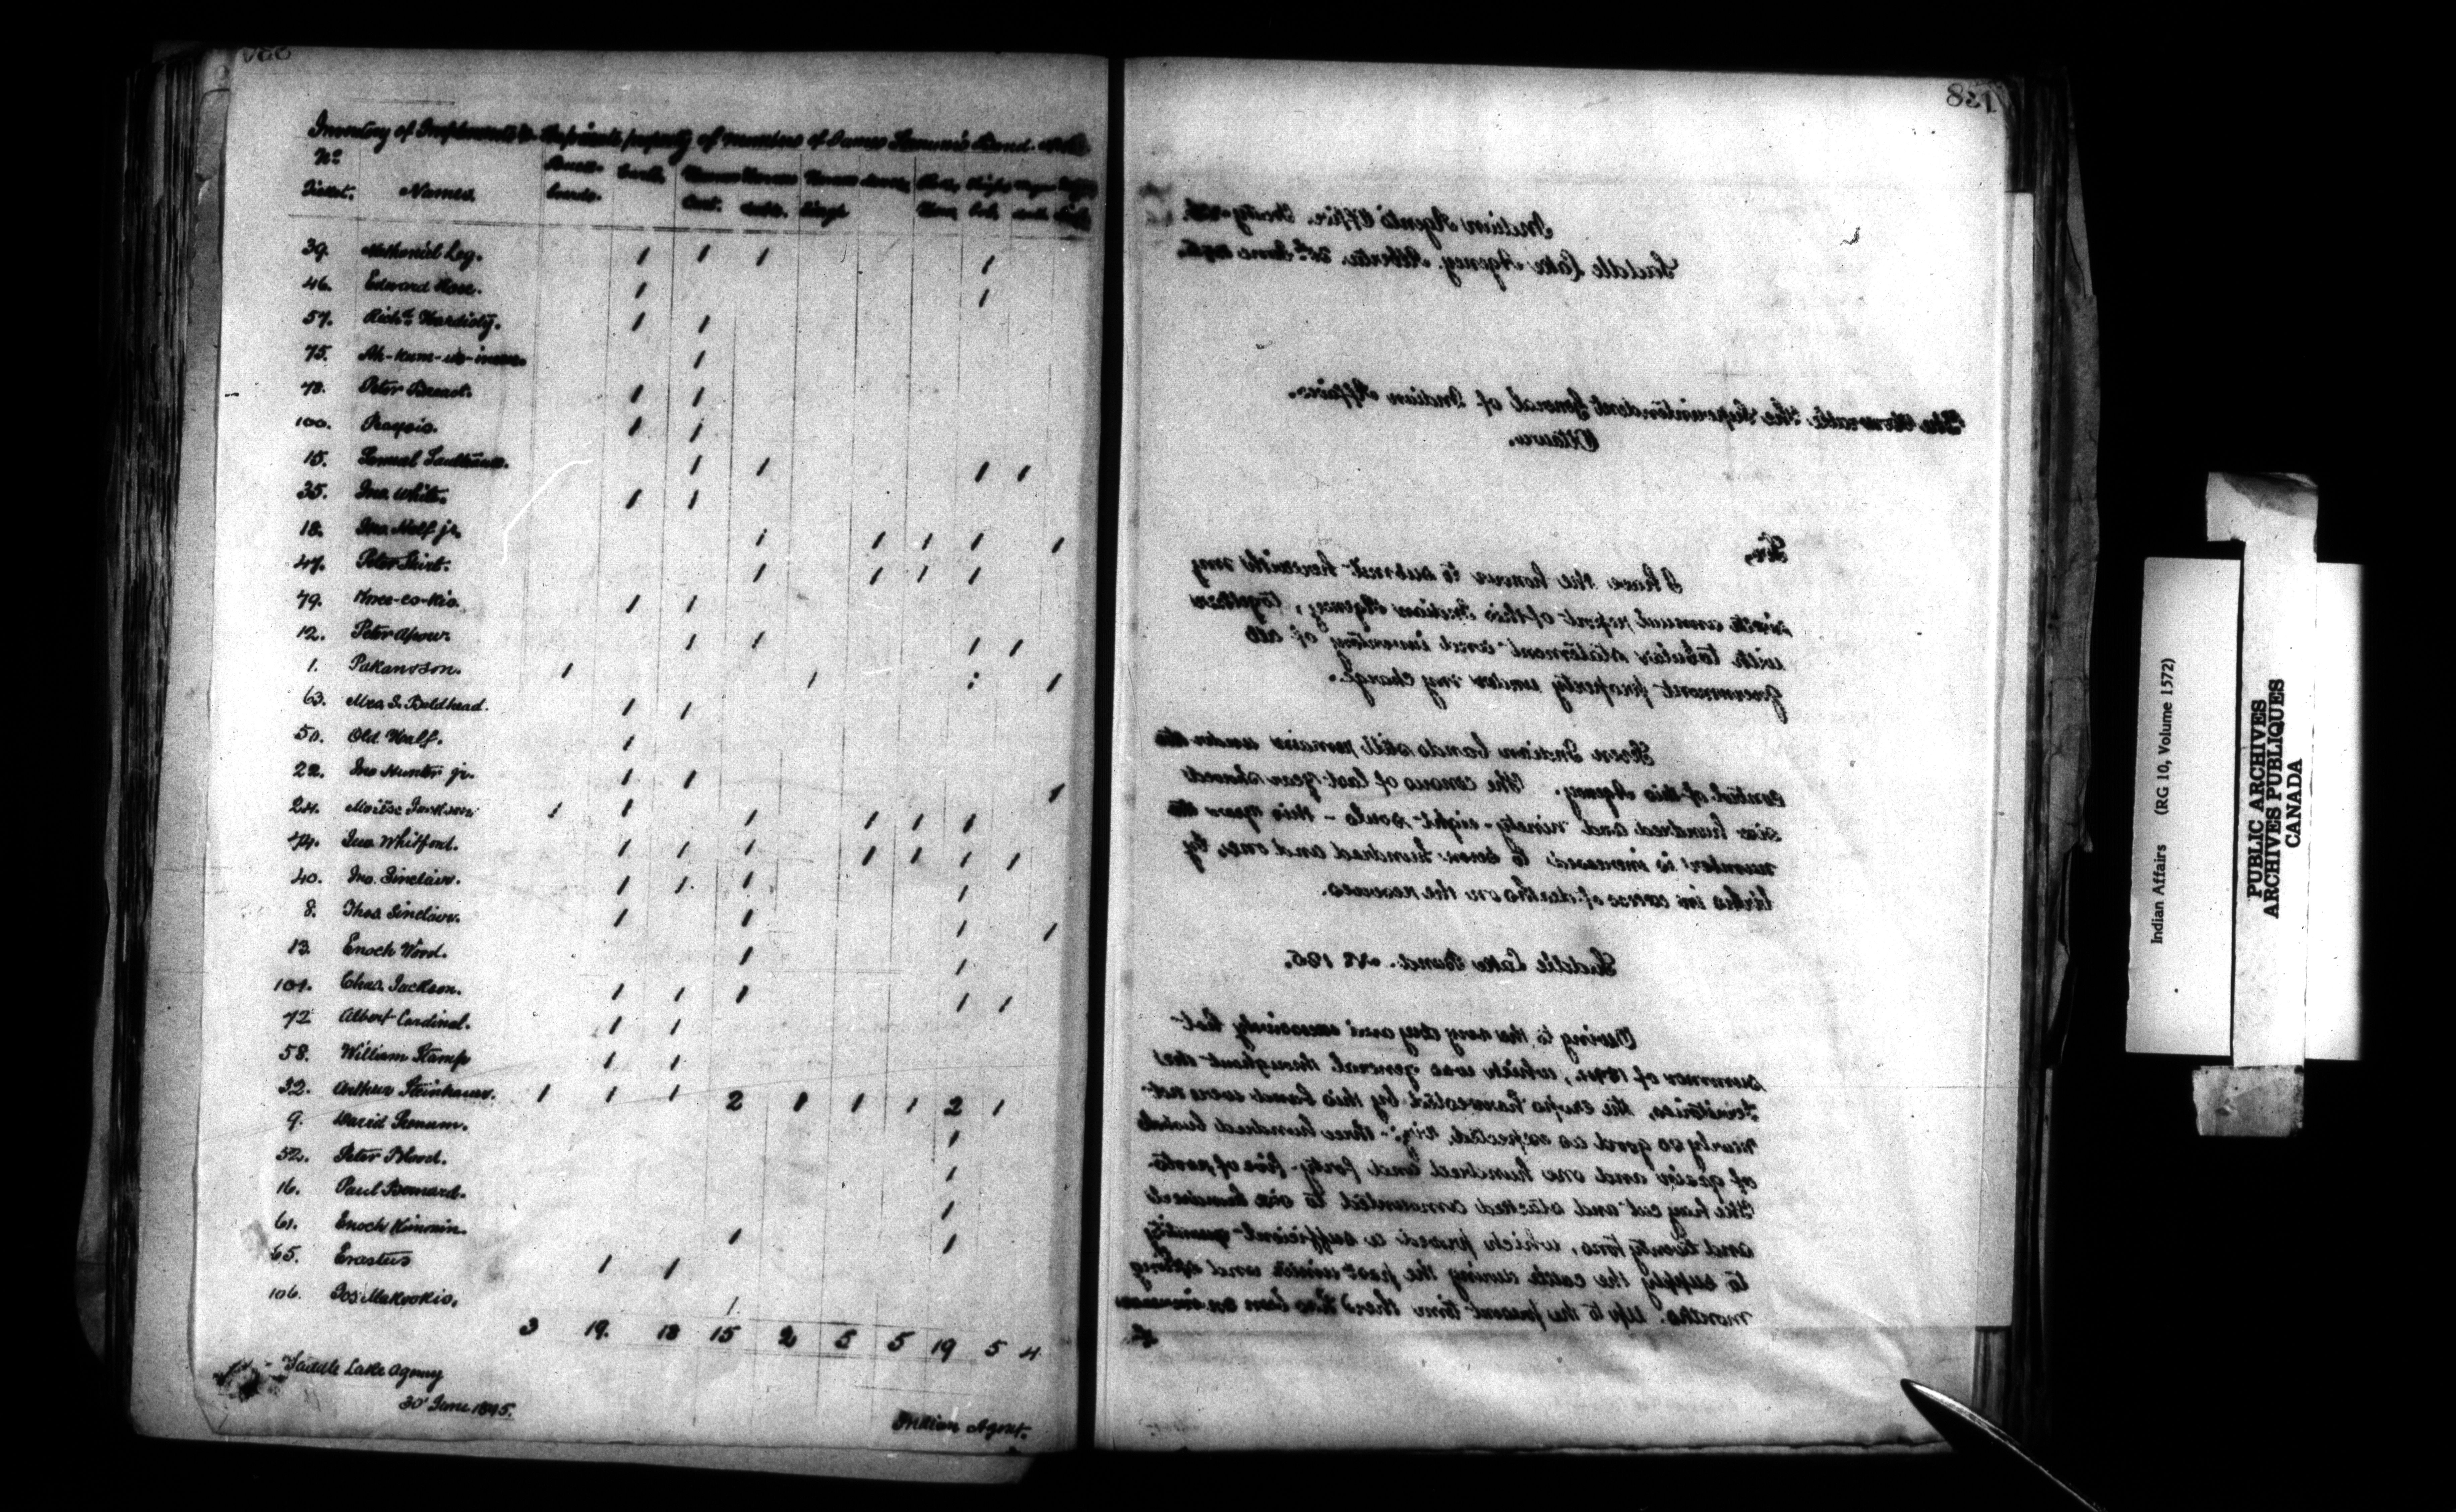 Inventory of Implements &c. the private property of members of James Seenum's Band.
No
Ticket. Names. Buck- boards. Cart. sleds.
39. Nathaniel Leg. 1 1 1 1
46. Edward 1 1
57. Richd Hardisty. 1 1
75. 1
78. Peter 1 1
100. 1 1
15. Samuel 1 1 1 1
35. Jno. White. 1 1
18. Jno. Half jr. 1 1 1 1 1
47. Peter Shirt. 1 1 1 1
79. 1 1
12. Peter Apow. 1 1 1 1
1. Pakansson. 1 1 1 1
63. Mrs. S. Baldhead. 1 1
50. Old Half. 1
22. Jno Hunter jr. 1 1 1
24. Moïse Jackson 1 1 1 1 1 1
74. Jno. Whitford. 1 1 1 1 1 1 1
40. Jno. Sinclair. 1 1 1 1
8. Thos. Sinclair. 1 1 1 1
13. Enoch Wood. 1 1
101. Chas. Jackson. 1 1 1 1 1
72 Albert Cardinal. 1 1
58. William Stamp 1 1
32. Arthur Steinhauer. 1 1 1 2 1 1 1 2 1
9. David Seenum. 1
52. Peter Blood. 1
16. Paul Bernard. 1
61. Enoch 1 1
65. Erastus 1 1
106. Jos Makookis. 1
3 19. 18 15 2 5 5 19 5 4
Saddle Lake Agency
30 June 1895.
Indian Agent.
831
Indian Agent's Office,
Saddle Lake Agency, Alberta. 25th June
The Honorable. The Superintendent General of Indian Affairs.
Ottawa.
Sir,
I have the honour to submit herewith my
annual report of this Indian Agency, together
with tabular statement and inventory of all
Government property under my charge.
Seven Indian bands still remain under the
control of this Agency. The census of last year showed
six hundred and ninety-eight souls - this year the
number is increased to seven hundred and one, by
births in excess of deaths on the reserves.
Saddle Lake Band. No 125.
Owing to the very dry and excessively hot
summer of 1894, which was general throughout the
Territories, the crops harvested by this band were not
nearly so good as expected, viz:- three hundred bushels
of grain and one hundred and forty-five of roots.
The hay cut and stacked amounted to six hundred
and twenty tons, which proved a sufficient quantity
to supply the cattle during the past winter and spring
months. Up to the present time there has been an increase
Indian Affairs (RG 10, Volume 1572)
PUBLIC ARCHIVES
ARCHIVES PUBLIQUES
CANADA